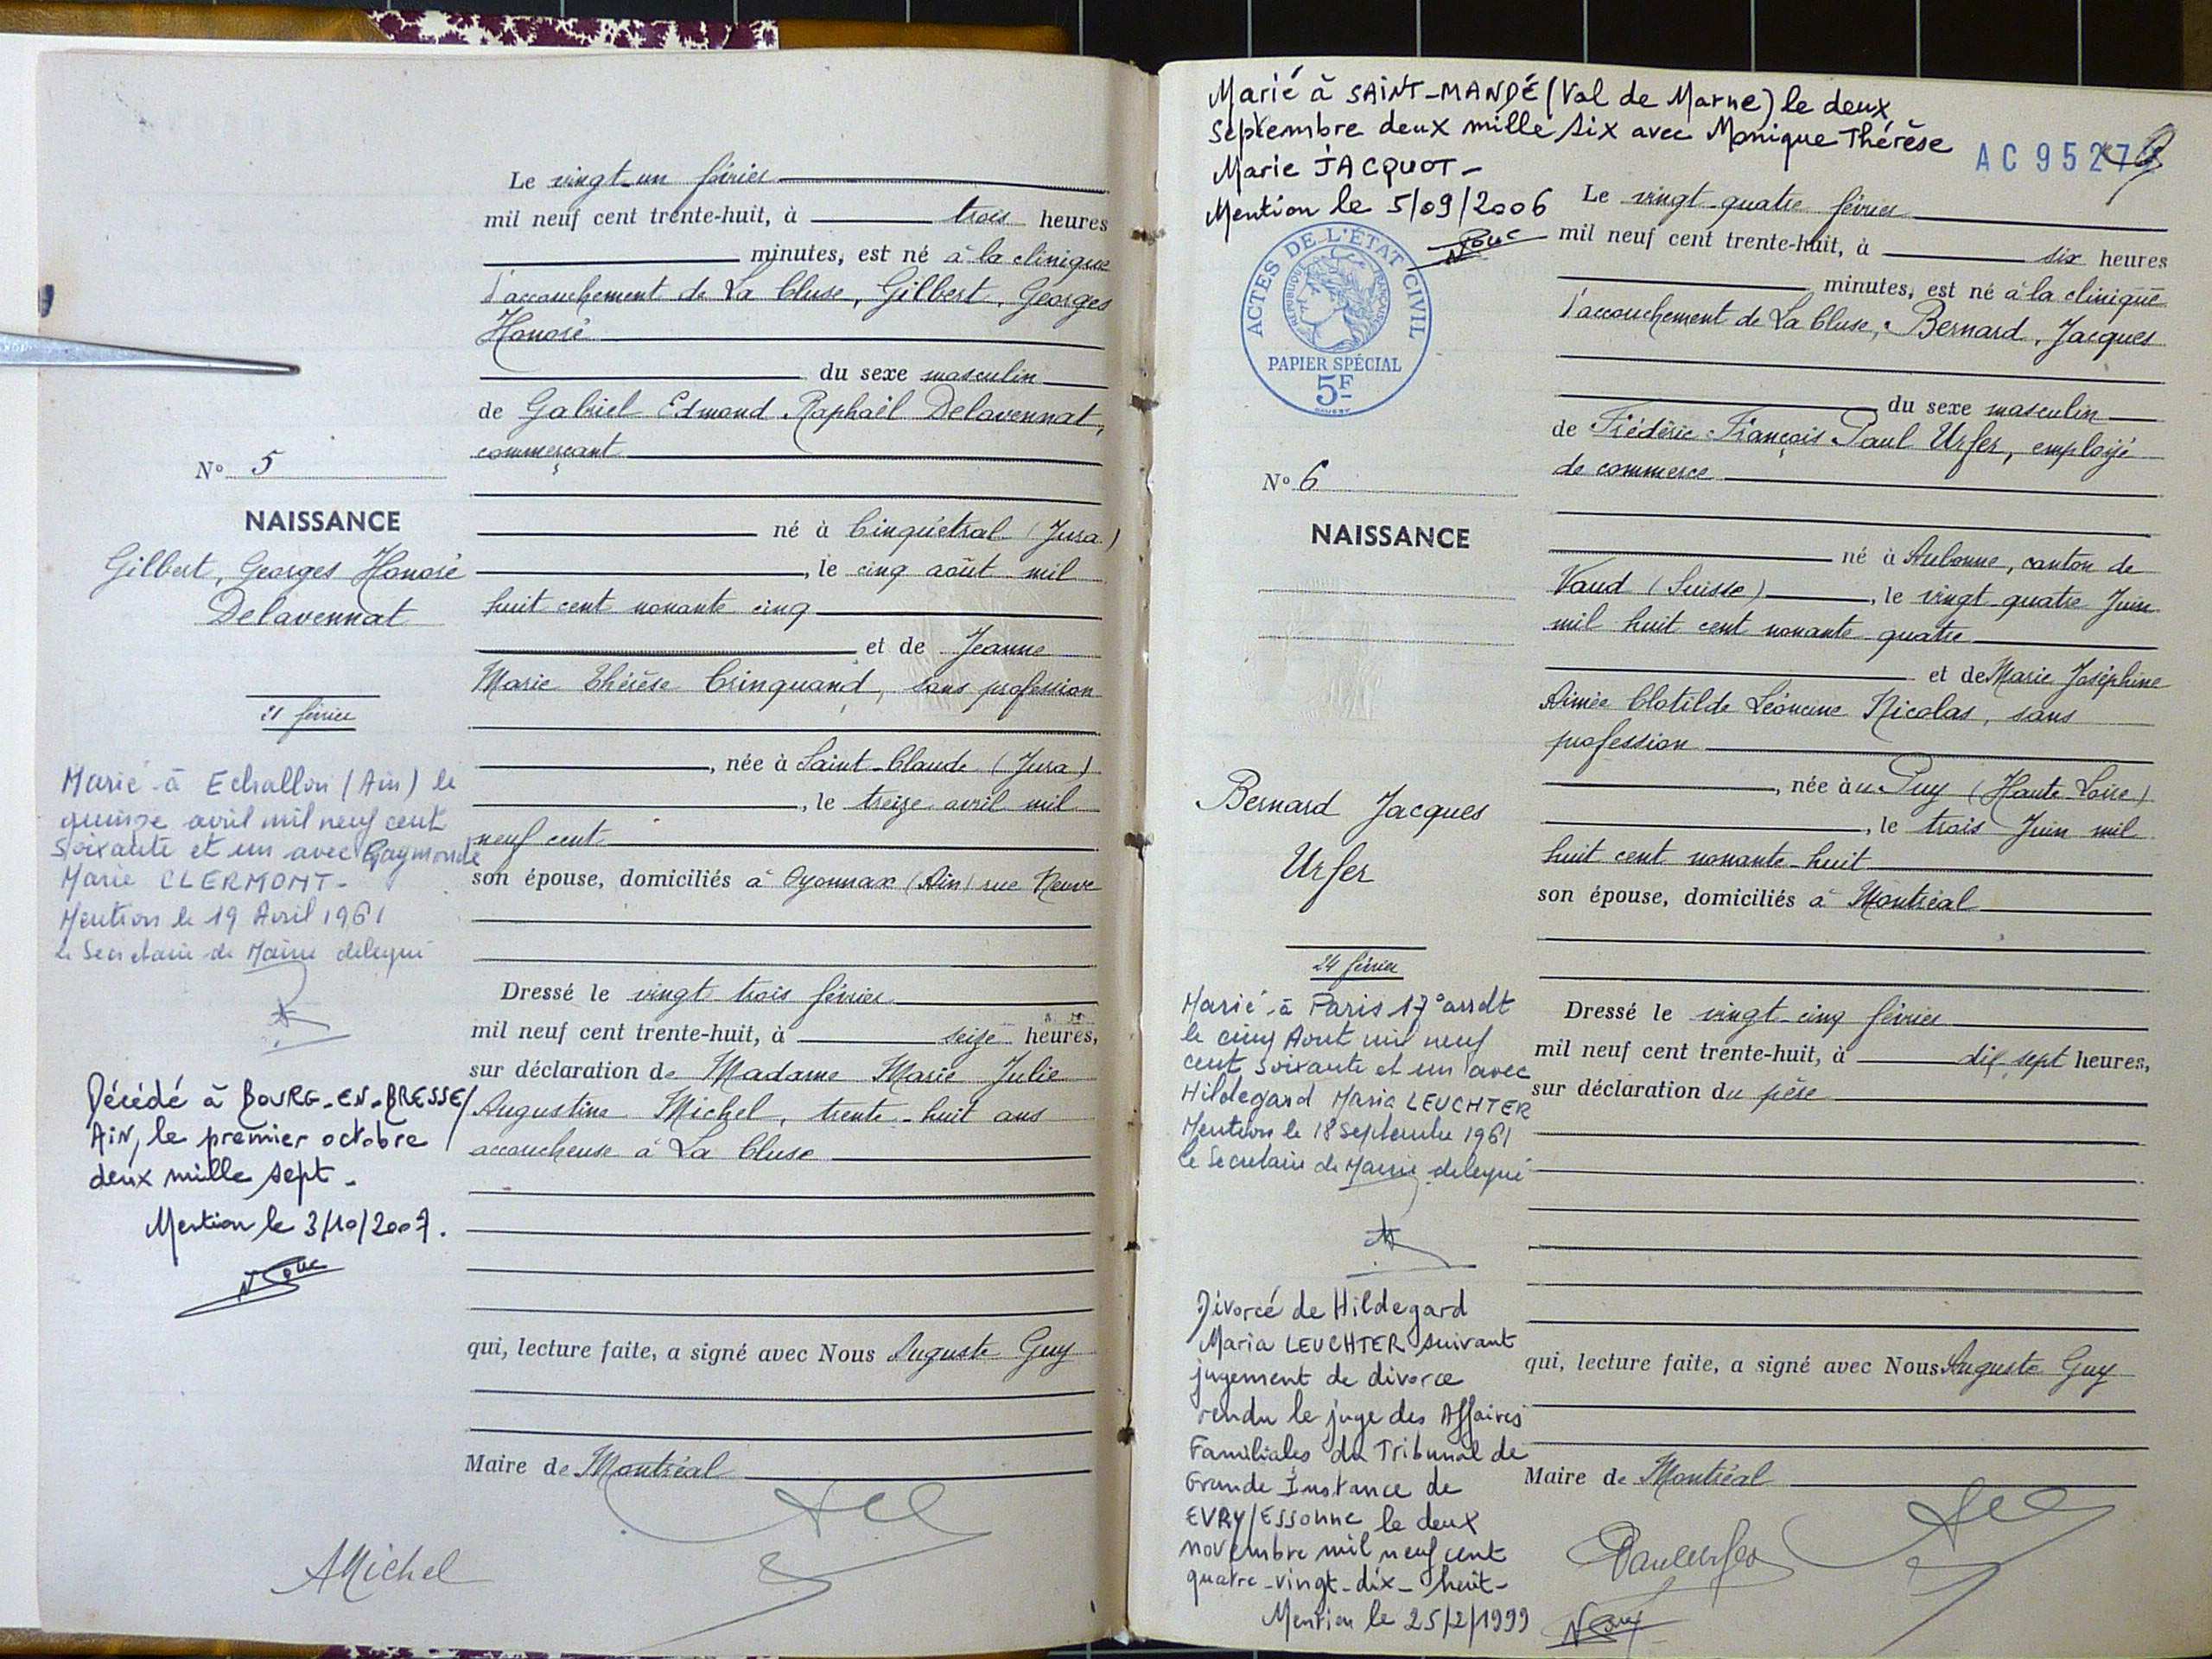 Le vingt-un février
mil neuf cent trente-huit, à trois heures
minutes, est né à la clinique
d'accouchement de La Cluse, Gilbert, Georges
Honoré
du sexe masculin
de Gabriel Edmond Raphaël Delavennat,
commerçant
né à Cinquétral (Jura)
, le cinq août mil
huit cent nonante cinq
et de Jeanne
Marie Thérèse Crinquand, sans profession
, née à Saint-Claude (Jura)
, le treize avril mil
neuf cent
son épouse, domiciliés à Oyonnax (Ain) rue Neuve
Dressé le vingt trois février
mil neuf cent trente-huit, à seize heures,
sur déclaration de Madame Marie Julie
Augustine Michel, trente-huit ans
accoucheuse à La Cluse
qui, lecture faite, a signé avec Nous Auguste Guy
Maire de Montréal
AMichel
No 5
NAISSANCE
Gilbert, Georges Honoré
Delavennat
21 février
Marié à Echallon (Ain) le
quinze avril mil neuf cent
soixante et un avec Raymonde
Marie CLERMONT-
Mention le 19 Avril 1961
le Secrétaire de Mairie délégué
Décédé à BOURG-EN-BRESSE/
AIN, le premier octobre
deux mille sept -
Mention le 3/10/2007.
Marié à SAINT-MANDÉ (Val de Marne) le deux
Septembre deux mille six avec Monique Thérèse
Marie JACQUOT -
Mention le 5/09/2006
AC 9527
ACTES DE L'ÉTAT CIVIL
RÉPUBLIQUE FRANÇAISE
PAPIER SPÉCIAL
5F
Le vingt-quatre février
mil neuf cent trente-huit, à six heures
minutes, est né à la clinique
d'accouchement de La Cluse, Bernard, Jacques
du sexe masculin
de Frédéric François Paul Urfer, employé
de commerce
né à Aubonne, canton de
Vaud (Suisse), le vingt-quatre Juin
mil huit cent nonante-quatre
et de Marie Joséphine
Aimée Clotilde Léoncine Nicolas, sans
profession
, née au Puy (Haute-Loire)
, le trois Juin mil
huit cent nonante-huit
son épouse, domiciliés à Montréal
Dressé le vingt-cinq février
mil neuf cent trente-huit, à dix sept heures,
sur déclaration du père
qui, lecture faite, a signé avec Nous Auguste Guy
Maire de Montréal
No 6
NAISSANCE
Bernard Jacques
Urfer
24 février
Marié à Paris 17e arrdt
le cinq Aout mil neuf
cent soixante et un avec
Hildegard Maria LEUCHTER
Mention le 18 Septembre 1961
le Secrétaire de Mairie délégué
Divorcé de Hildegard
Maria LEUCHTER suivant
jugement de divorce
rendu le juge des Affaires
Familiales du Tribunal de
Grande Instance de
EVRY/ESSONNE le deux
novembre mil neuf cent
quatre-vingt-dix-huit-
Mention le 25/2/1999